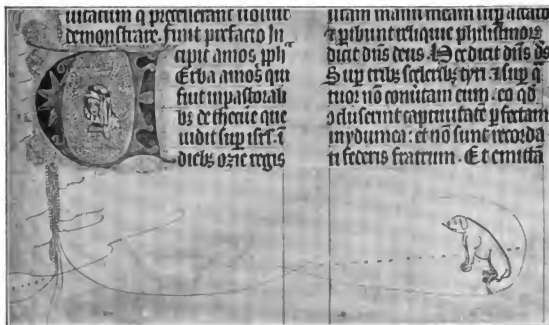 uitatum q precellerant nouue
demonstrare. Finit prefacio In
cipit amos ppħ
Erba amos qui
fuit in pastorali
bz de thecue que
uidit sup isrl. ī
diebz ozie regis
manū meam sup accaro
⁊ pibunt relique philistinoꝝ
dicit dn̄s deus. Hec dicit dn̄s ds
Sup tribz sceleribz tyri ⁊ sup q̄
tuor nō conūtam eum. eo qd̄
ꝯcluserint captiuitatē ꝑfectam
in ydumea: et nō sunt recorda
ti federis fratrum. Et emittā